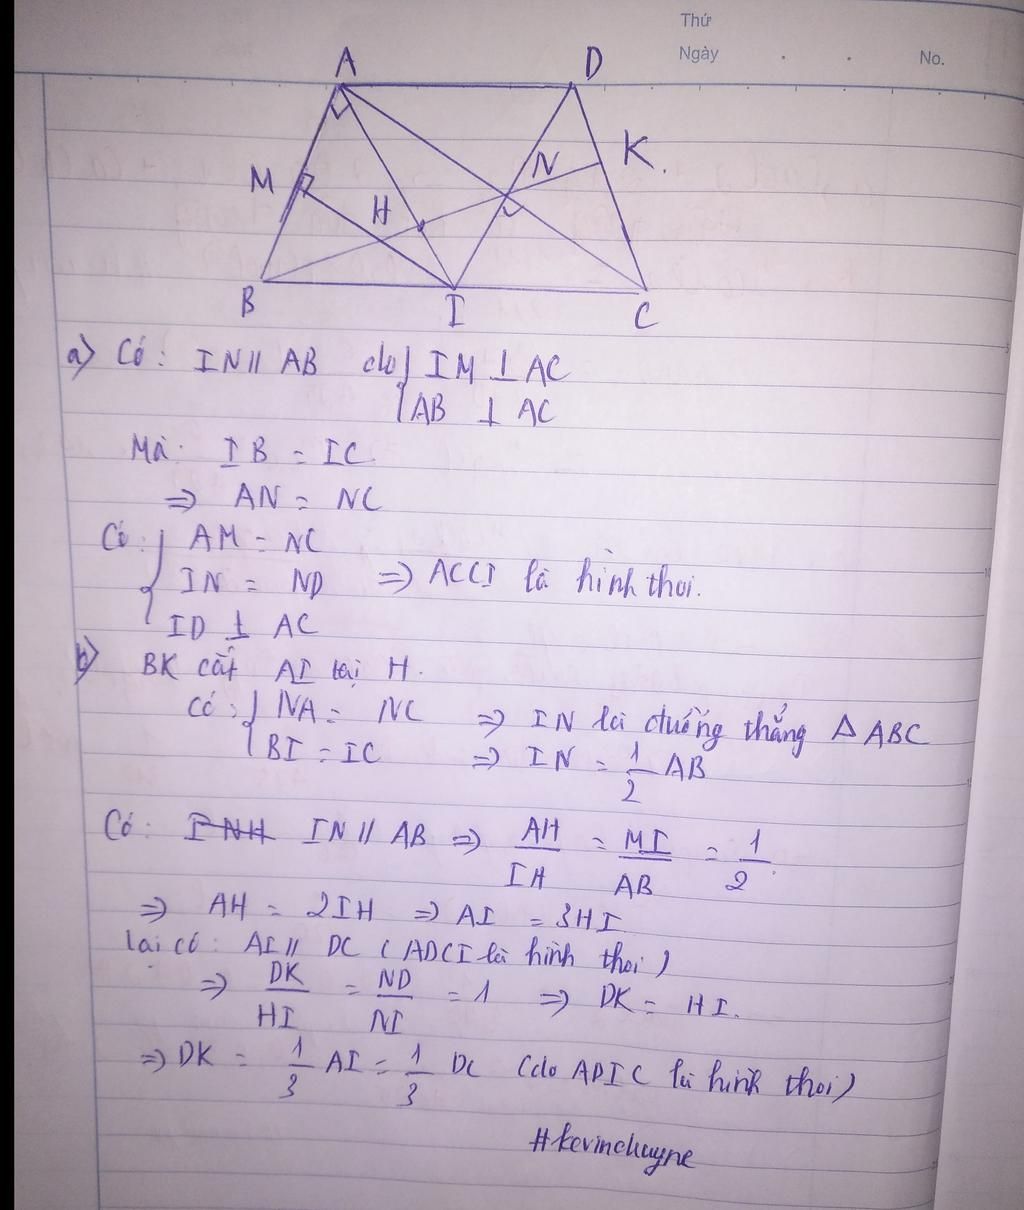 Thứ
Ngày . . No.
A D
M H N K.
B I C
a) Có: IN // AB do { IM ⊥ AC
AB ⊥ AC
Mà: IB = IC
=> AN = NC
Có: { AM = NC
IN = ND => ACCI là hình thoi.
ID ⊥ AC
b) BK cắt AI tại H.
Có: { NA = NC => IN là đường thẳng Δ ABC
BI = IC => IN = 1/2 AB
Có: INH IN // AB => AH/IH = MI/AB = 1/2.
=> AH = 2IH => AI = 3HI
lại có: AI // DC (ADCI là hình thoi)
=> DK/HI = ND/NI = 1 => DK = HI.
=> DK = 1/3 AI = 1/3 DC (do ADIC là hình thoi)